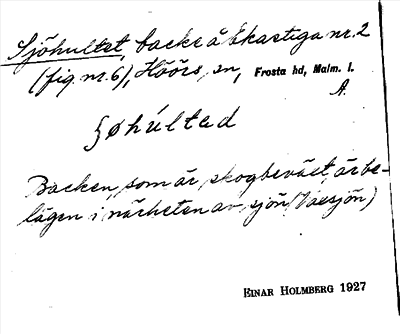 Sjöhultet, backe å Ekastiga nr. 2
(fig. nr. 6), Höörs sn, Frosta hd, Malm. l.
A.
ʃøhúltəd
Backen, som är skogbeväxt, är be-
lägen i närheten av sjön (Vaesjön)
EINAR HOLMBERG 1927